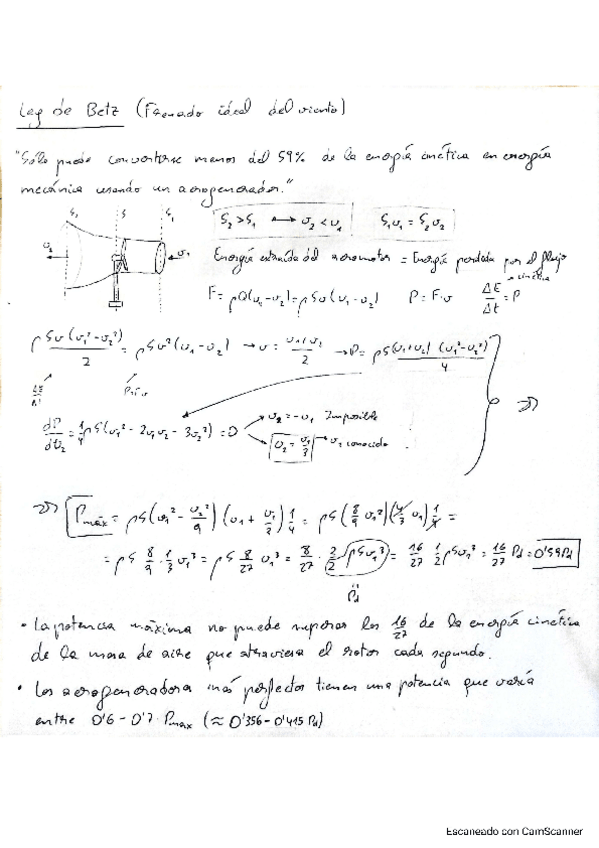 Ley de Betz (Frenado ideal del viento)
"Sólo puede convertirse menos del 59% de la energía cinética en energía
mecánica usando un aerogenerador."
S₂ S S₁
v₂ v₁
S₂ > S₁ ⟷ v₂ < v₁ S₁v₁ = S₂v₂
Energía extraída del aeromotor = Energía perdida por el flujo
cinética
F = ρQ(v₁-v₂) = ρSv(v₁-v₂) P = F·v ΔE/Δt = P
ρSv(v₁²-v₂²)/2 = ρSv²(v₁-v₂) → v = (v₁+v₂)/2 → P = ρS(v₁+v₂)(v₁²-v₂²)/4
ΔE/Δt P=F·v
dP/dv₂ = 1/4 ρS(v₁² - 2v₁v₂ - 3v₂²) = 0 → v₂ = -v₁ Imposible
→ v₂ = v₁/3 → conocido
⇒ Pmáx = ρS(v₁² - v₁²/9)(v₁ + v₁/3) 1/4 = ρS(8/9 v₁²)(4/3 v₁) 1/4 =
= ρS 8/9 · 1/3 v₁³ = ρS 8/27 v₁³ = 8/27 · 2/2 ρSv₁³ = 16/27 1/2 ρSv₁³ = 16/27 Pd = 0'59Pd
Pd
• La potencia máxima no puede superar los 16/27 de la energía cinética
de la masa de aire que atraviesa el rotor cada segundo.
• Los aerogeneradores más perfectos tienen una potencia que varía
entre 0'6 - 0'7 · Pmáx (≈ 0'356 - 0'415 Pd)
Escaneado con CamScanner